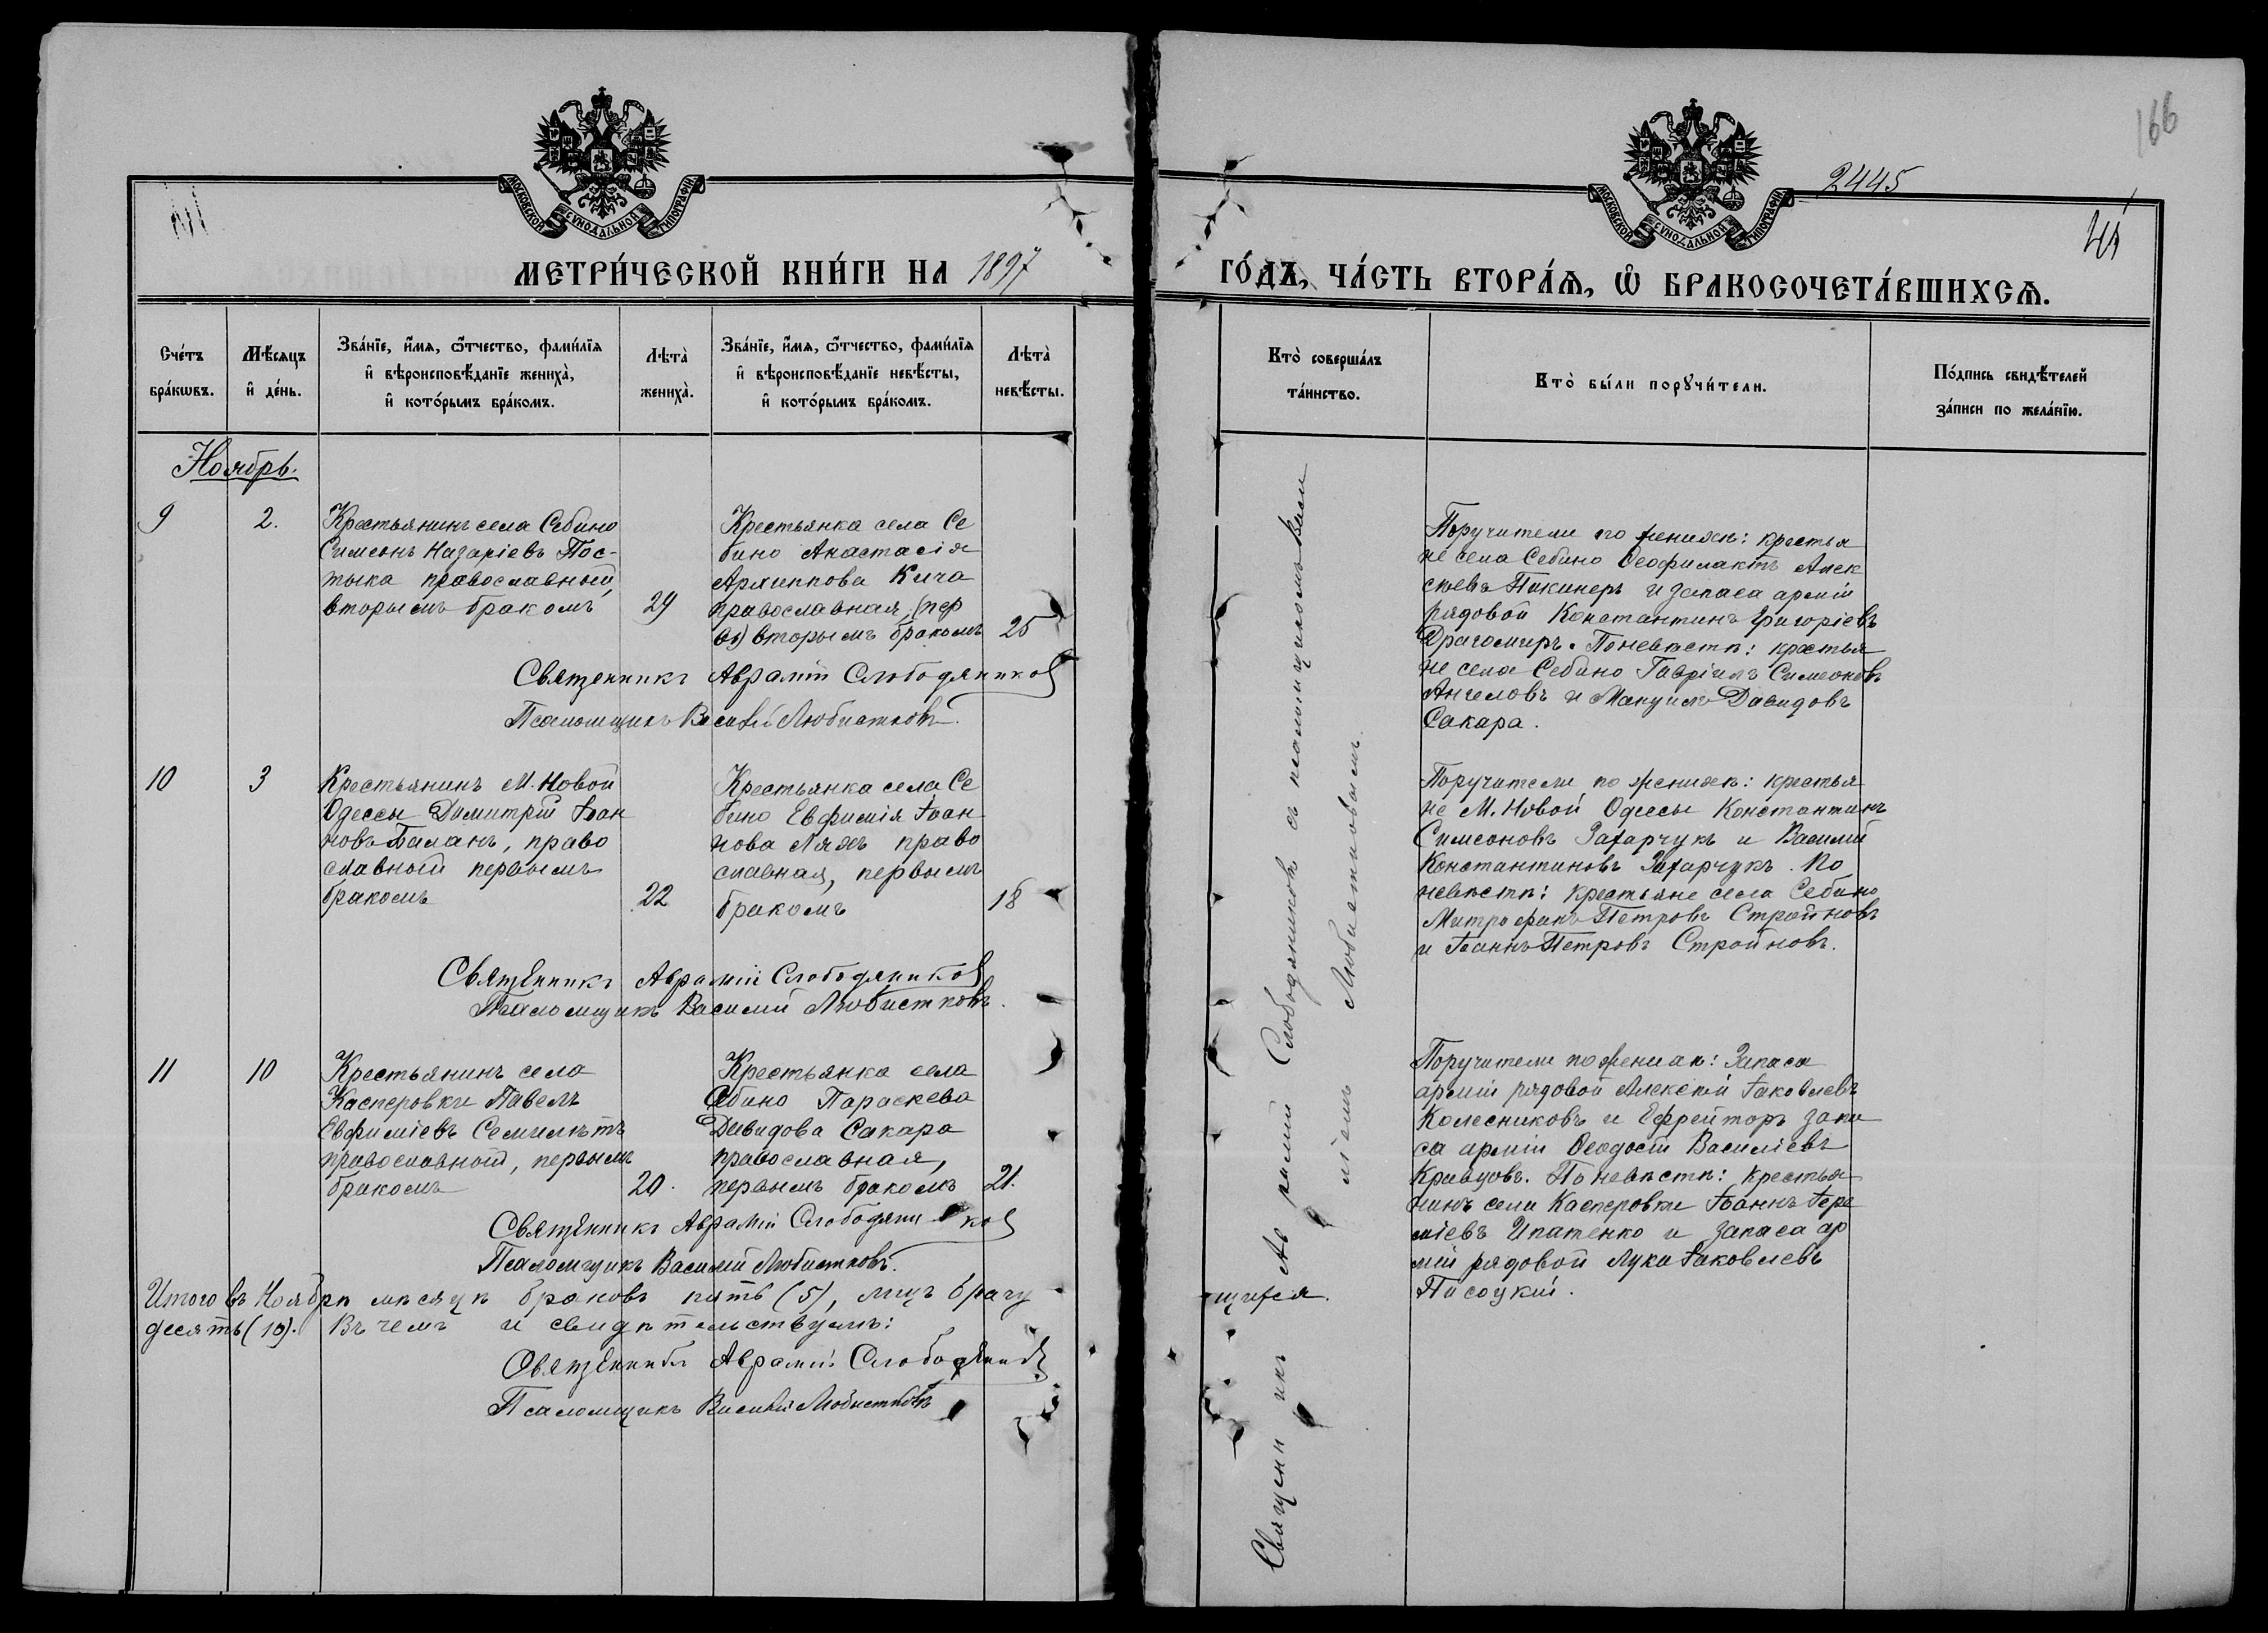 166
2445
41
МОСКОВСКОЙ СѴНОДАЛЬНОЙ ТИПОГРАФІИ
МОСКОВСКОЙ СѴНОДАЛЬНОЙ ТИПОГРАФІИ
МЕТРИ́ЧЕСКОЙ КНИ́ГИ НА 1897
ГО́ДЪ, ЧА́СТЬ ВТОРА́Ѧ, Ѽ БРАКОСОЧЕТА́ВШИХСѦ.
Сче́тъ бра́кѡвъ.
Мѣ́сяцъ и҆ де́нь.
Зва́нїе, и҆́мя, ѻ҆́тчество, фами́лїя и҆ вѣроисповѣ́данїе жениха̀, и҆ кото́рымъ бра́комъ.
Лѣта̀ жениха̀.
Зва́нїе, и҆́мя, ѻ҆́тчество, фами́лїя и҆ вѣроисповѣ́данїе невѣ́сты, и҆ кото́рымъ бра́комъ.
Лѣта̀ невѣ́сты.
Кто̀ соверша́лъ та́инство.
Кто̀ бы́ли порꙋчи́тели.
По́дпись свидѣ́телей за́писи по жела́нїю.
Ноябрь.
9
2.
Крестьянинъ села Себино
Симеонъ Назаріевъ Пос-
тыка православный,
вторымъ бракомъ
29
Крестьянка села Се
бино Анастасія
Архиппова Кича
православная, (пер
вы) вторымъ бракомъ
25
Поручители по женихѣ: крестья
не села Себино Ѳеофилактъ Алек
сѣевъ Пикинеръ и запаса арміи
рядовой Константинъ Григоріевъ
Драгомиръ. По невѣстѣ: крестья
не села Себино Гавріилъ Симеоновъ
Ангеловъ и Мануилъ Давидовъ
Сакара.
Священникъ Аврамій Слободяников
Псаломщикъ Василій Любистковъ.
10
3
Крестьянинъ М. Новой
Одессы Димитрій Іоан
новъ Баланъ, право
славный первымъ
бракомъ
22
Крестьянка села Се
бино Евфимія Іоан
нова Ляхъ право
славная, первымъ
бракомъ
18
Поручители по женихѣ: крестья
не М. Новой Одессы Константинъ
Симеоновъ Захарчукъ и Василій
Константиновъ Захарчукъ. По
невѣстѣ: крестьяне села Себино
Митрофанъ Петровъ Стройновъ
и Іоаннъ Петровъ Стройновъ.
Священникъ Аврамій Слободяников
Псаломщикъ Василій Любистковъ.
11
10
Крестьянинъ села
Касперовки Павелъ
Евфиміевъ Семилѣтъ
православный, первымъ
бракомъ
20.
Крестьянка села
Себино Параскева
Давидова Сакара
православная,
первымъ бракомъ
21.
Поручители по женихѣ: Запаса
арміи рядовой Алексій Іаковлевъ
Колесниковъ и Ефрейторъ запа
са арміи Ѳеодосій Василіевъ
Кривцовъ. По невѣстѣ: крестья
нинъ села Касперовки Іоаннъ Іере
міевъ Ипатенко и запаса ар
міи рядовой Лука Іаковлевъ
Писоцкій.
Священникъ Аврамій Слободяников
Псаломщикъ Василій Любистковъ.
Итого въ Ноябрѣ мѣсяцѣ браковъ пять (5), лицъ брачу
щихся.
десять (10). Въ чемъ и свидѣтельствуемъ:
Священникъ Аврамій Слободяников
Псаломщикъ Василій Любистковъ
Священникъ Аврамій Слободяниковъ съ псаломщикомъ Васи
ліемъ Любистковымъ.